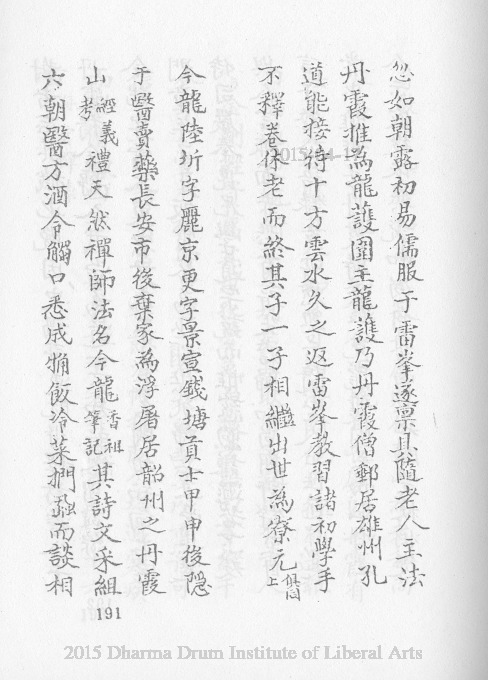 忽如朝露初易儒服于雷峯遂禀具隨老人主法
丹霞推為龍護園主龍護乃丹霞僧郵居雄州孔
道能接待十方雲水久之返雷峯教習諸初學手
不釋卷休老而終其子一子相繼出世為寮元俱同上
今龍陸圻字麗京更字景宣錢塘貢士甲申後隱
于醫賣藥長安市後棄家為浮屠居韶州之丹霞
山經義考禮天然禪師法名今龍香祖筆記其詩文采組
六朝醫方酒令觸口悉成餉飯冷菜捫蝨而談相
191
2015 Dharma Drum Institute of Liberal Arts